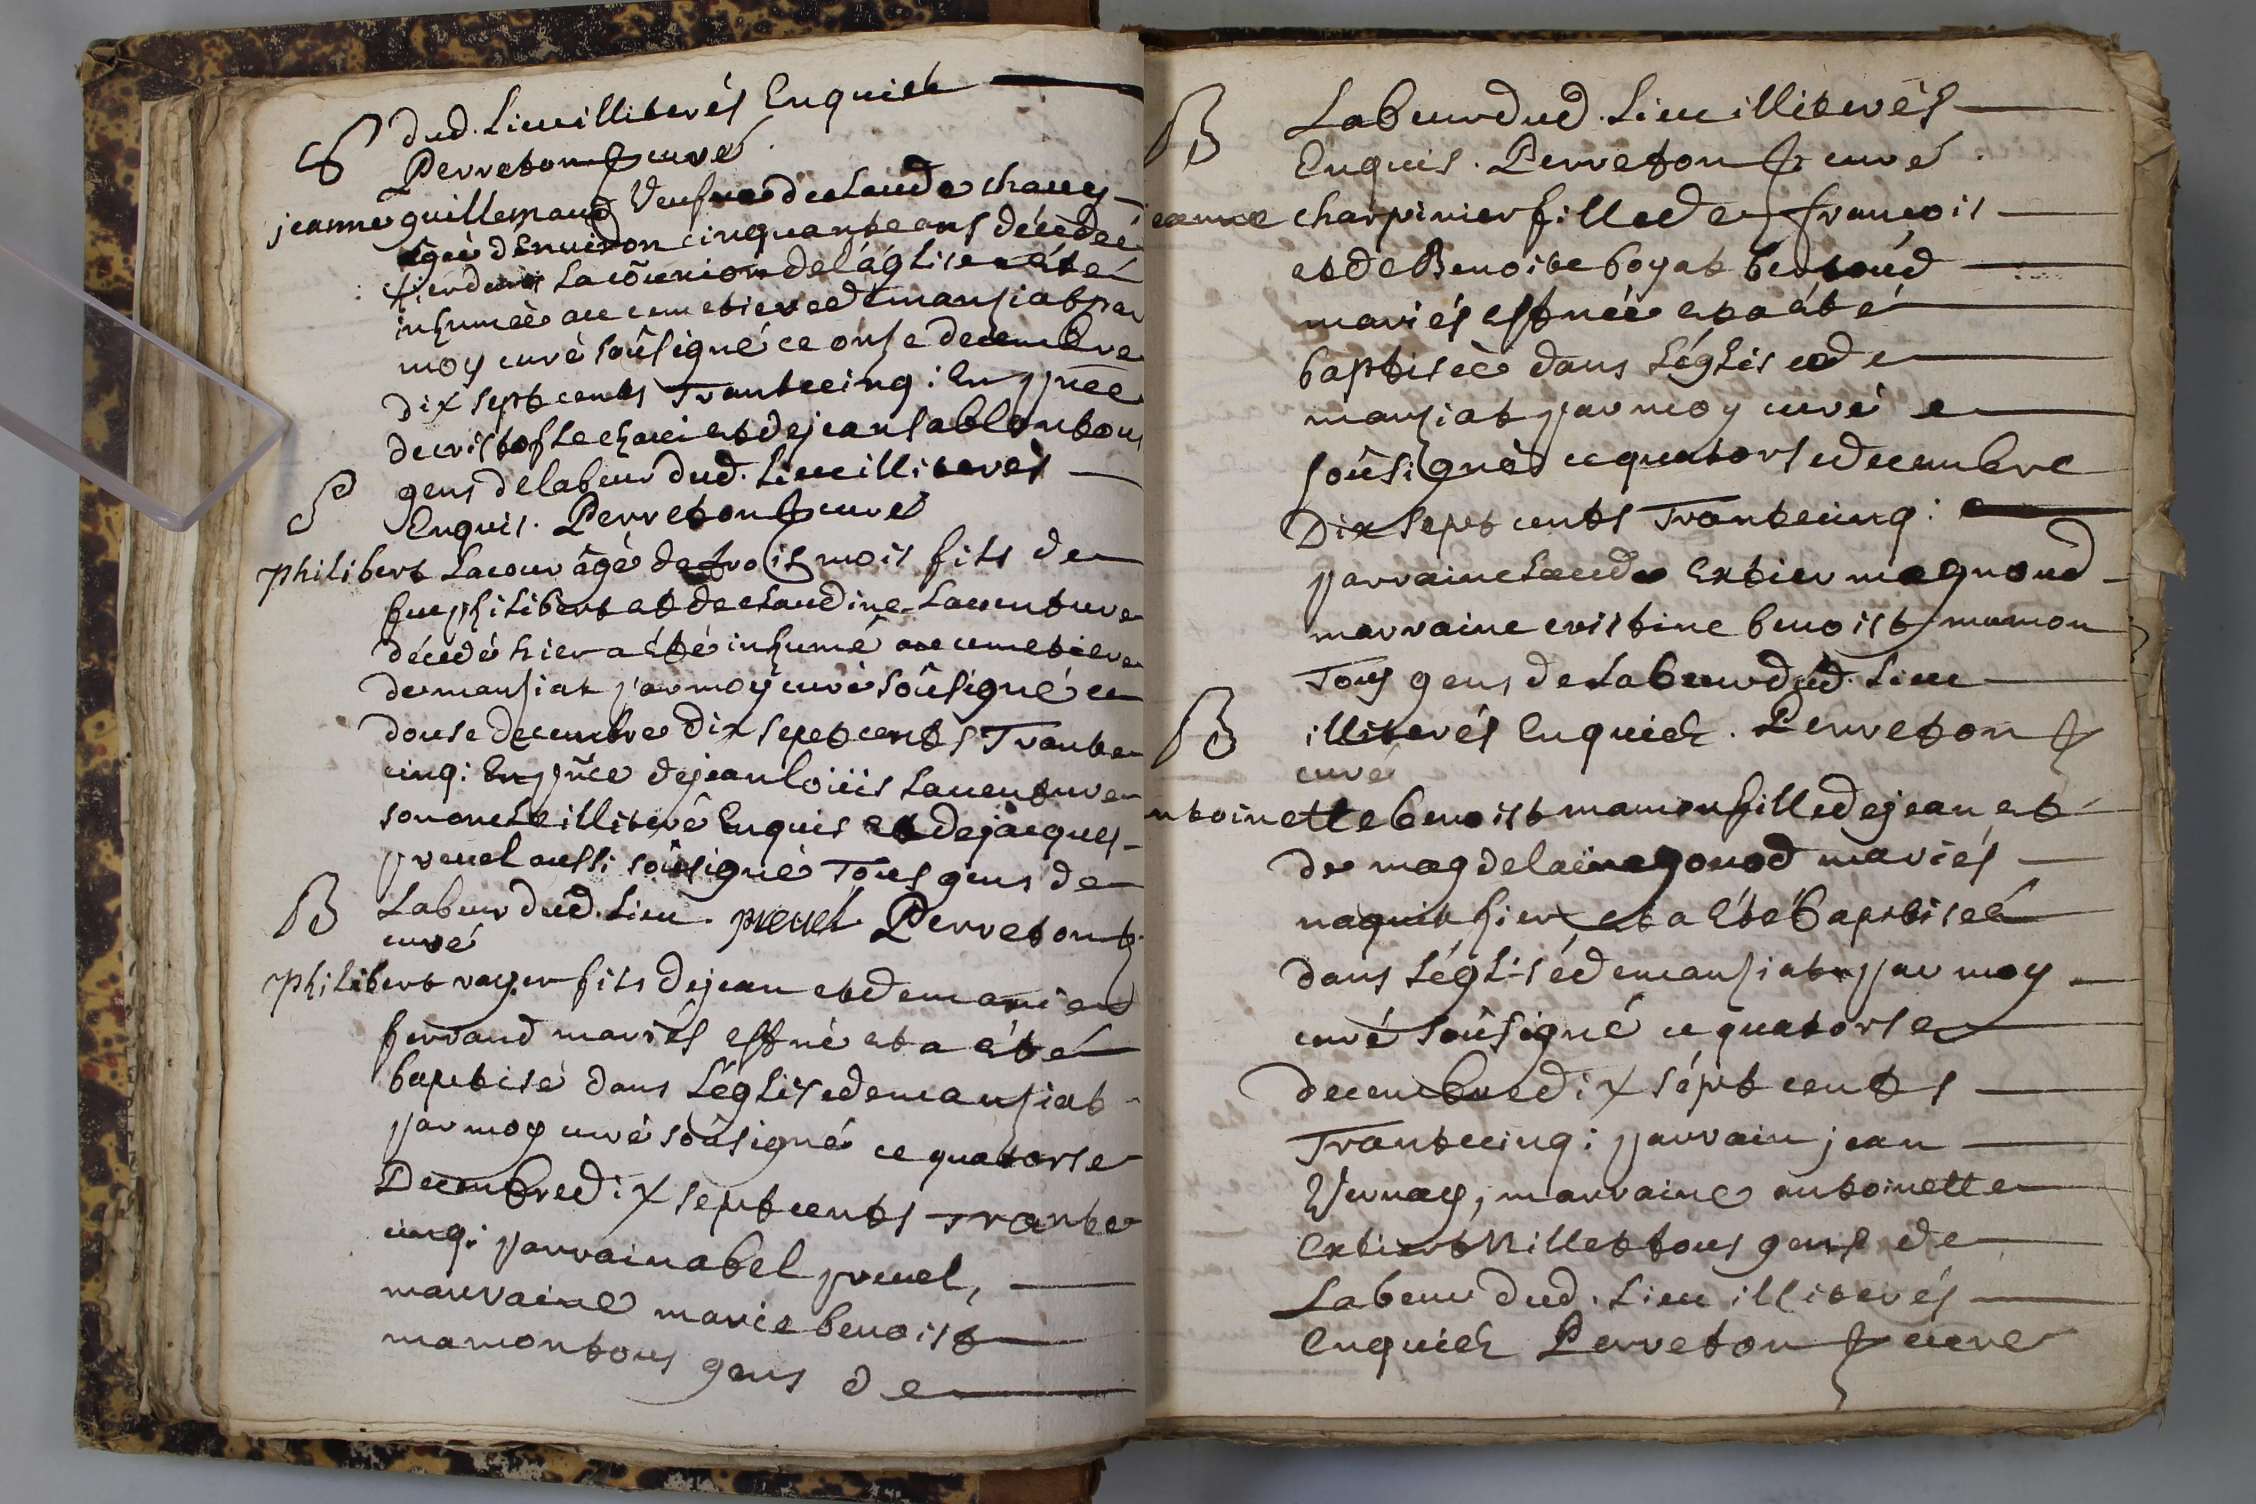 dud. Lieu illiterés Enquish
S
Perreton curé
jeanne guillemaud Veufve de claude chaney
âgée d'Environ cinquante ans décédée
hier dans La cõunion de l'église a été
inhumée au cimetiere de mansiat par
moy curé soûsigné ce onse decembre
dix sept cents Trante cinq: En pn̄ce
de cristofle et de jean sablon tous
S
gens de labeur dud. Lieu illiterés
Enquis. Perreton curé
philibert Lacour âgé de trois mois fils de
feu philibert et de claudine Lauenture
décédé hier a été inhumé au cimetiere
de mansiat par moy curé soûsigné ce
douse decembre dix sept cents Trante
cinq: En pn̄ce de jean loüis Lauenture
son oncle illiteré Enquis et de jacques
preuel aussi soûsigné Tous gens de
B
Labeur dud. Lieu. preuel Perreton
curé
philibert royer fils de jean et de marie
ferrand mariés est né et a été
baptisé dans L'église de mansiat
par moy curé soûsigné ce quatorse
Decembre dix sept cents Trante
cinq: parrain abel preuel,
marraine marie benoist
mamon tous gens de
B
Labeur dud. Lieu illiterés
Enquis. Perreton curé.
jeanne charpinier fille de françois
et de Benoite boyat
mariés est née et a été
baptisée dans L'église de
mansiat par moy curé
soûsigné ce quatorse decembre
Dix sept cents Trante cinq:
parrain claude Extier magnoud
marraine cristine benoist mamon
Tous gens de Labeur dud. Lieu
B
illiterés Enquich. Perreton
curé
antoinette benoist mamon fille de jean et
de magdelaine gonod mariés
naquit hier et a été baptisée
dans L'église de mansiat par moy
curé soûsigné ce quatorse
decembre dix sépt cents
Trante cinq: parrain jean
Vernay, marraine antoinette
Extier Nillet tous gens de
Labeur dud. Lieu illiterés
Enquich Perreton curé